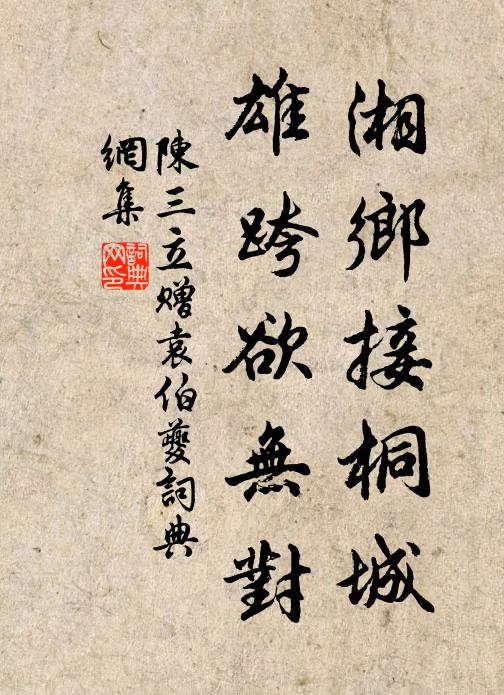 湘鄉接桐城
雄跨欲無對
陳三立贈袁伯夔詞典
網集
詞典
网印